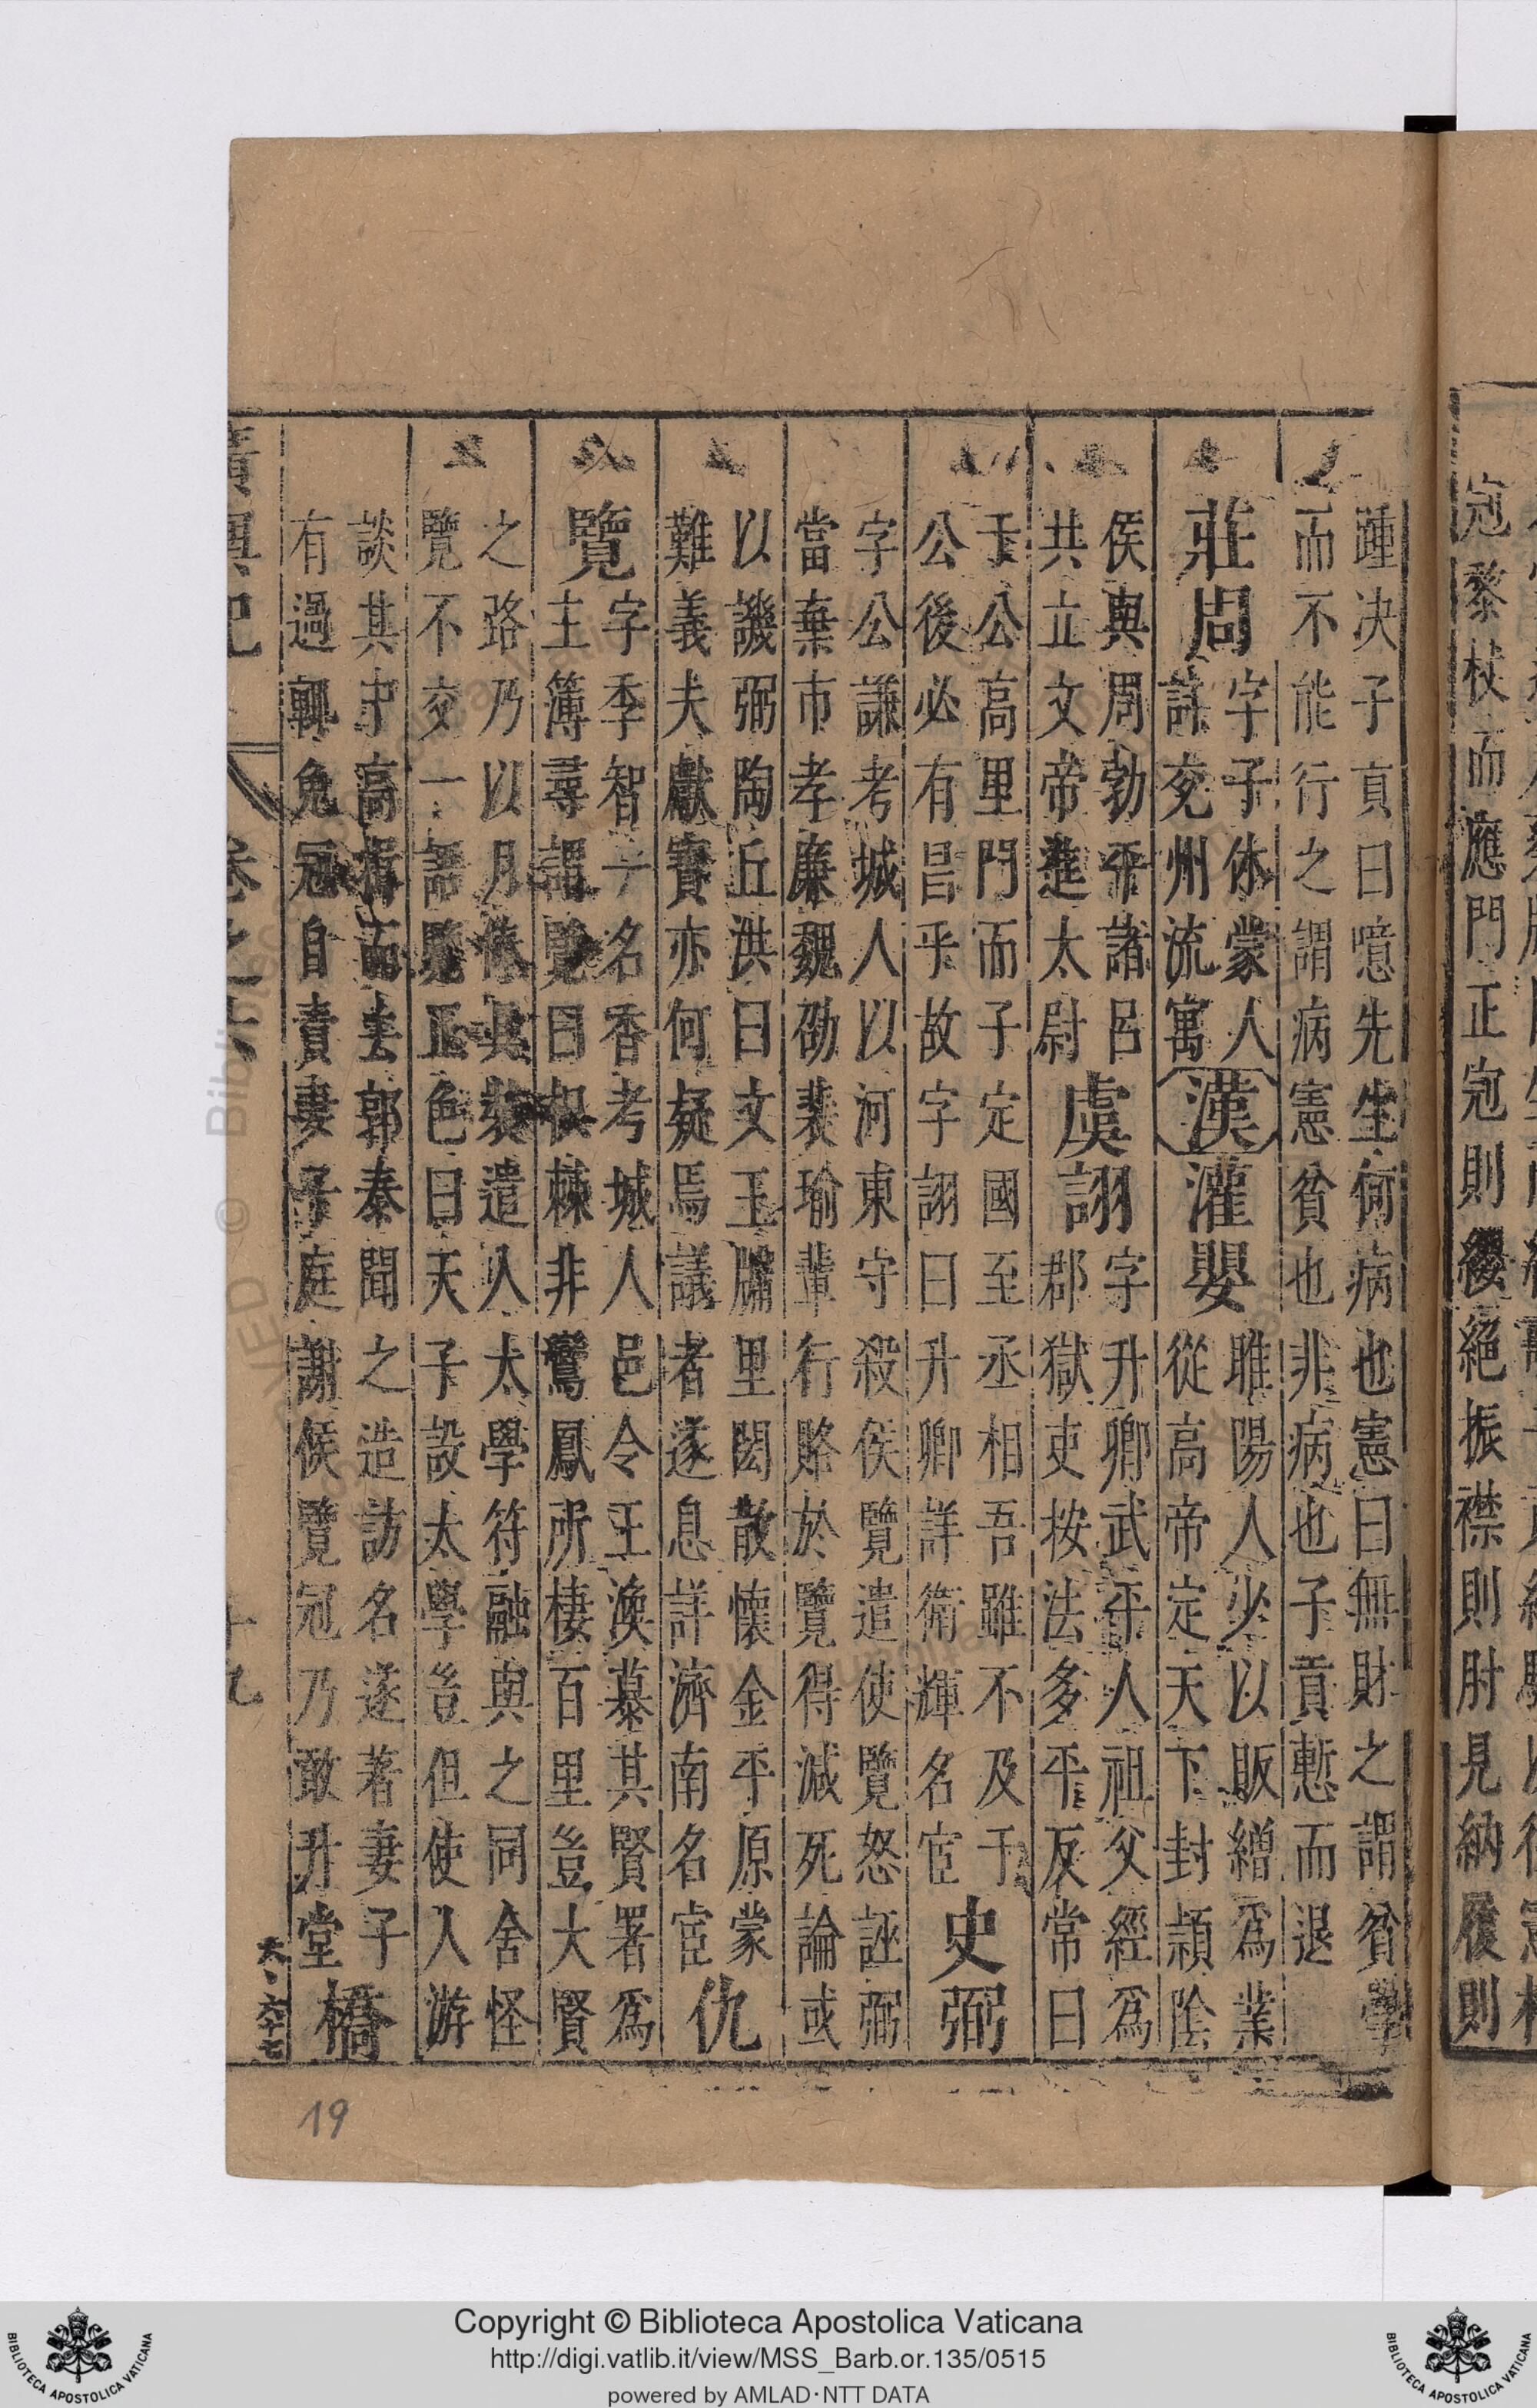 冦黎杖而應門正冦則纓絕振襟則肘見納履則
踵决子貢曰噫先生何病也憲曰無財之謂貧學
而不能行之謂病憲貧也非病也子貢慙而退
莊周
字子休蒙人
詳兗州流寓
漢
灌嬰
睢陽人少以販繒爲業
從高帝定天下封潁陰
侯與周勃平諸呂
共立文帝進太尉
虞詡
字升卿武平人祖父經爲
郡獄吏按法多平反常曰
于公高里門而子定國至丞相吾雖不及于
公後必有昌乎故字詡曰升卿詳衛輝名宦
史弼
字公謙考城人以河東守殺侯覽遣使覽怒誣弼
當棄市孝廉魏劭裴瑜輩行賂於覽得減死論或
以譏弼陶丘洪曰文王牖里閎散懷金平原蒙
難義夫獻寶亦何疑焉議者遂息詳濟南名宦
仇
覽
字季智一名香考城人邑令王渙慕其賢署爲
主簿尋謂覽曰枳棘非鸞鳳所棲百里豈大賢
之路乃以月俸與遣入太學符融與之同舍怪
覽不交一語覽正色曰天子設太學豈但使人游
談其中高揖而去郭泰聞之造訪名遂著妻子
有過輒免冠自責妻子庭謝候覽冠乃敢升堂
橋
廣輿記
卷之六
十九
19
Copyright © Biblioteca Apostolica Vaticana
http://digi.vatlib.it/view/MSS_Barb.or.135/0515
powered by AMLAD·NTT DATA
BIBLIOTECA APOSTOLICA VATICANA
BIBLIOTECA APOSTOLICA VATICANA